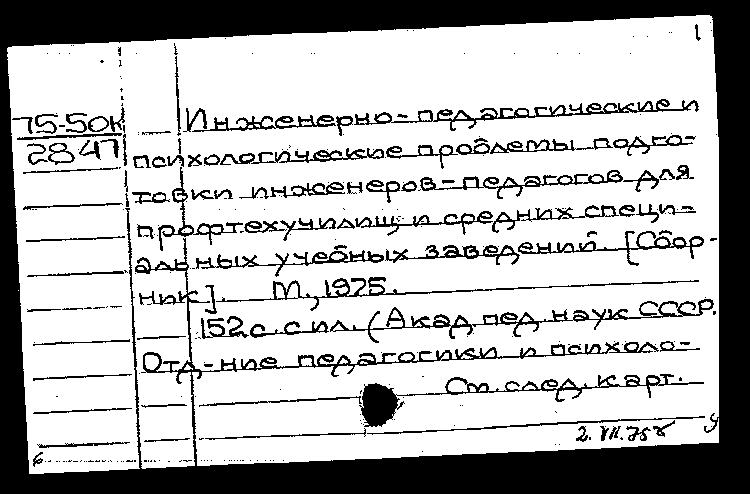 1
75-50к Инженерно-педагогические и
2847 психологические проблемы подго-
товки инженеров-педагогов для
профтехучилищ и средних специ-
альных учебных заведений. [Сбор-
ник]. М., 1975.
152 с. с ил. (Акад. пед. наук СССР.
Отд-ние педагогики и психоло-
См. след. карт.
2. VII. 75г
6